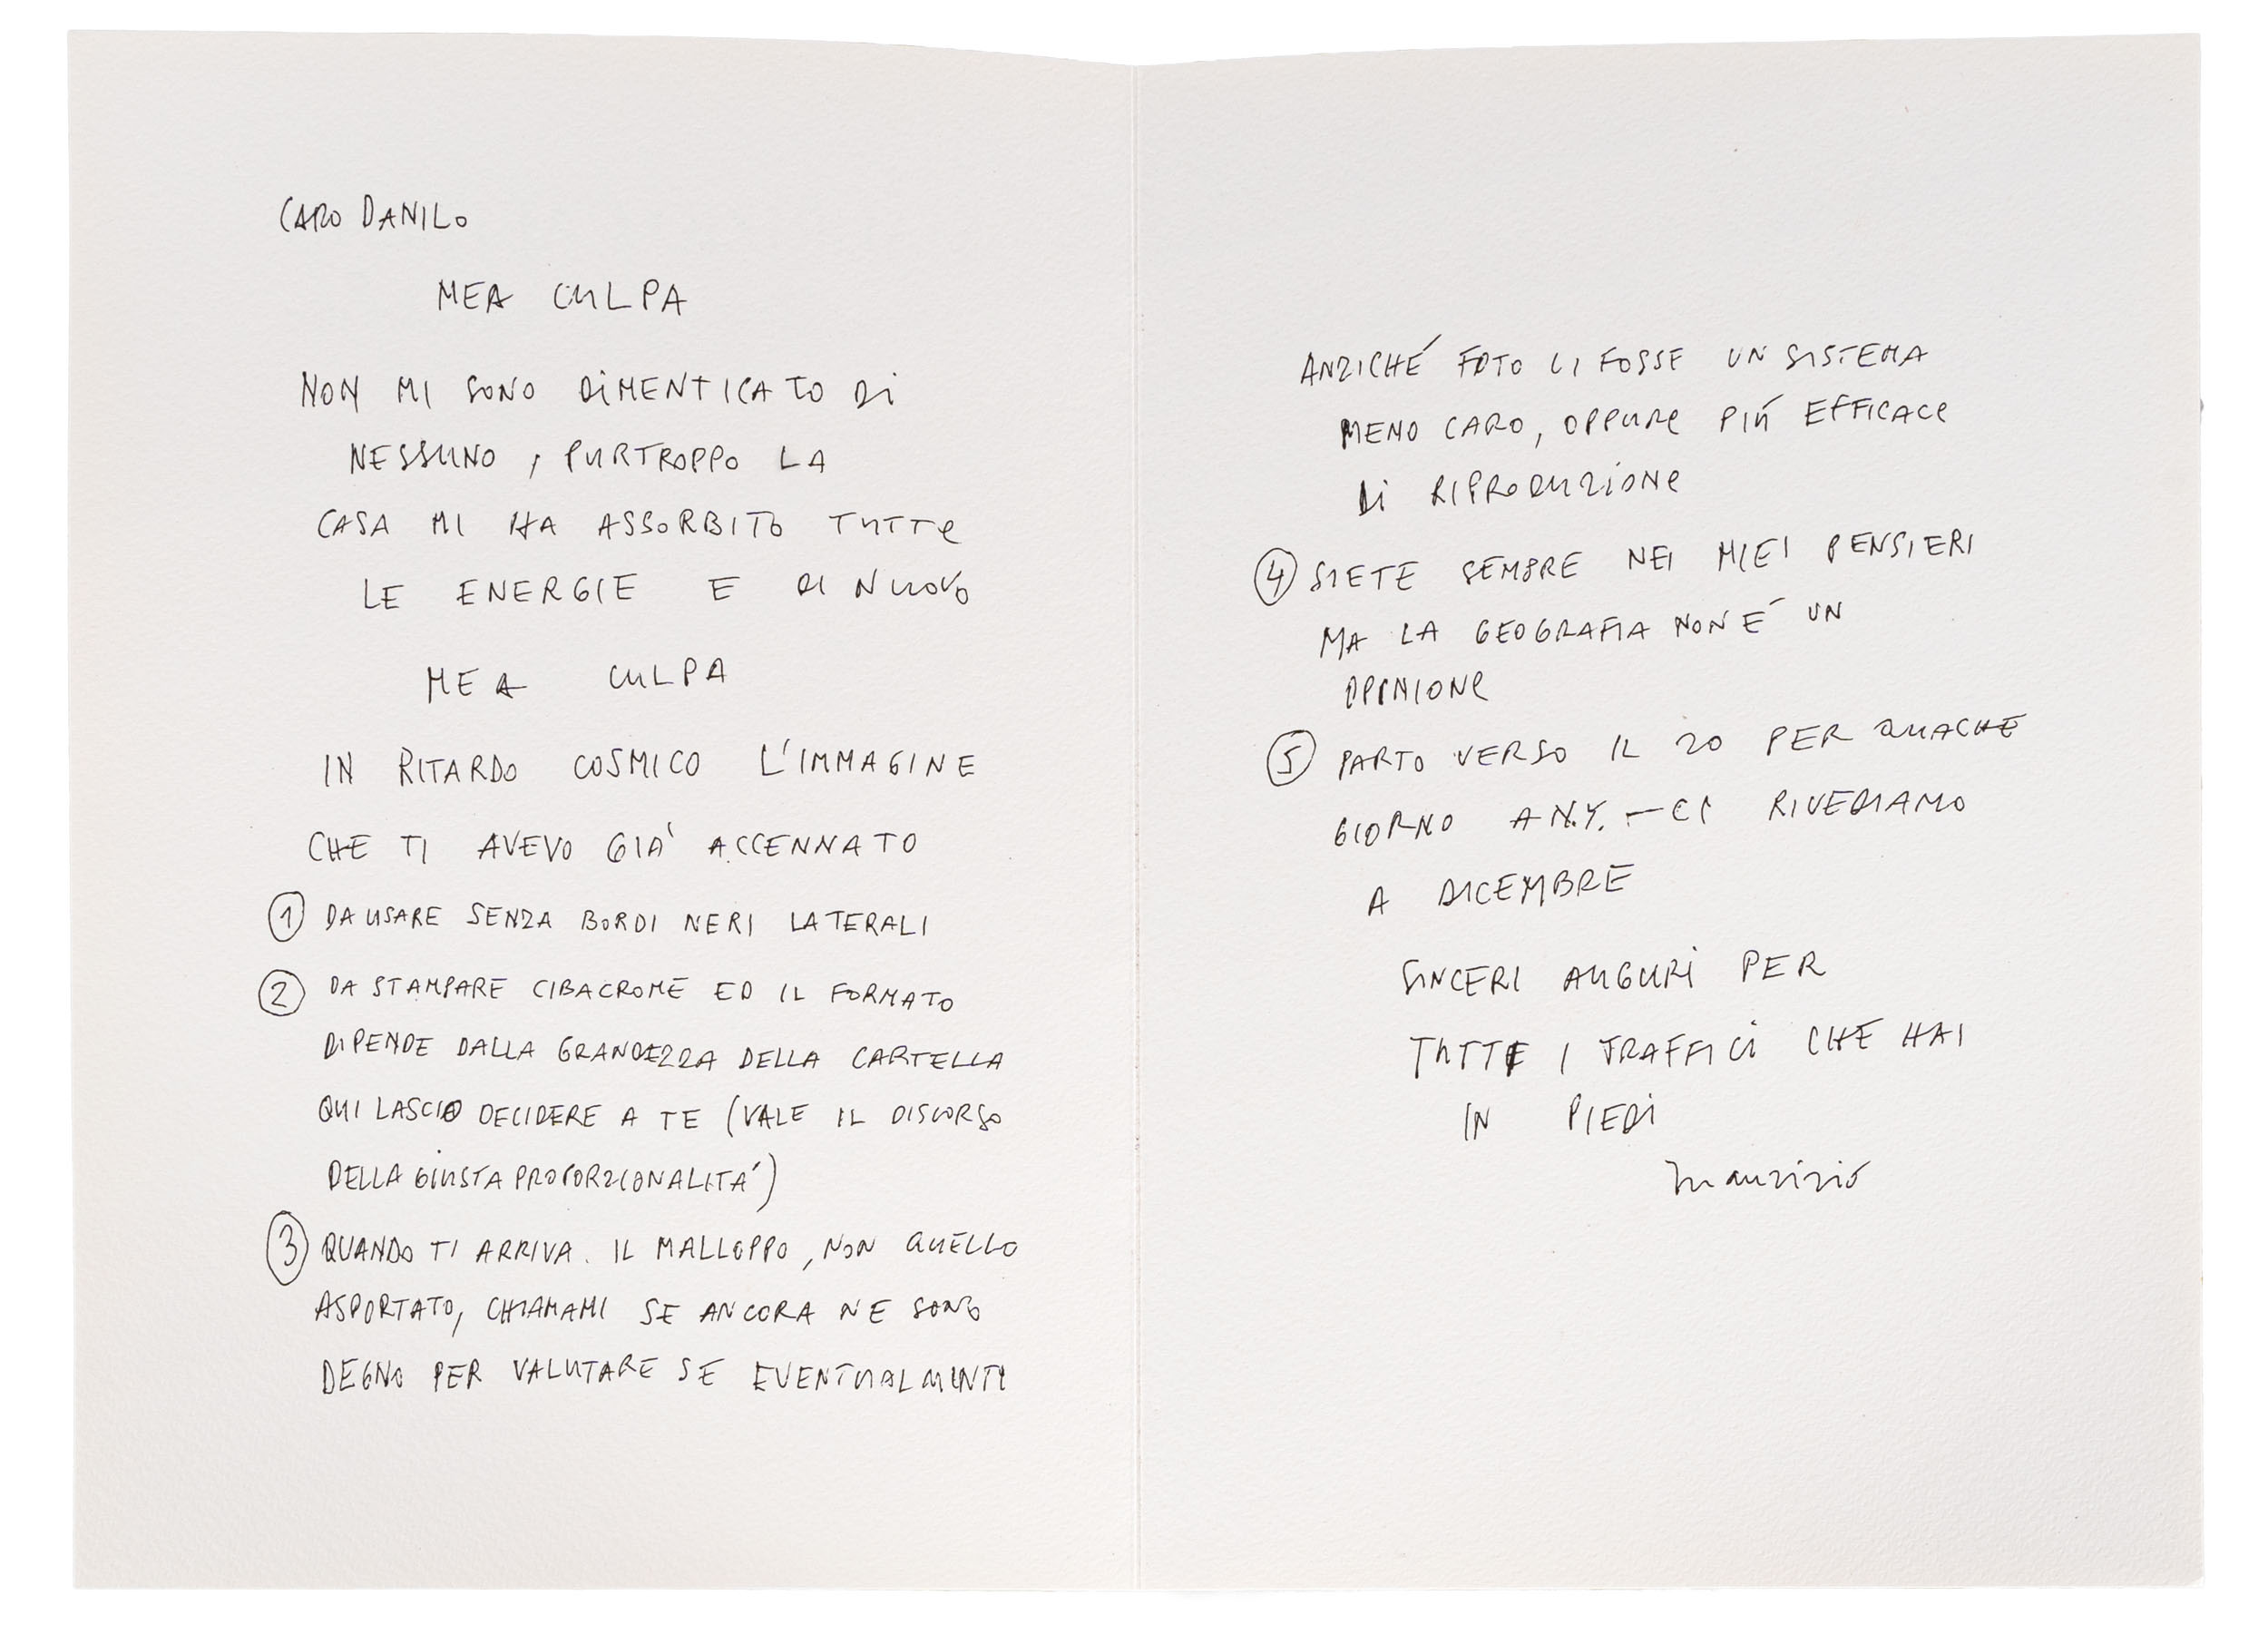 CARO DANILO
MEA CULPA
NON MI SONO DIMENTICATO DI
NESSUNO, PURTROPPO LA
CASA MI HA ASSORBITO TUTTE
LE ENERGIE E DI NUOVO
MEA CULPA
IN RITARDO COSMICO L'IMMAGINE
CHE TI AVEVO GIA' ACCENNATO
① DA USARE SENZA BORDI NERI LATERALI
② DA STAMPARE CIBACROME ED IL FORMATO
DIPENDE DALLA GRANDEZZA DELLA CARTELLA
QUI LASCIO DECIDERE A TE (VALE IL DISCORSO
DELLA GIUSTA PROPORZIONALITÁ)
③ QUANDO TI ARRIVA. IL MALLOPPO, NON QUELLO
ASPORTATO, CHIAMAMI SE ANCORA NE SONO
DEGNO PER VALUTARE SE EVENTUALMENTE
ANZICHÉ FOTO CI FOSSE UN SISTEMA
MENO CARO, OPPURE PIÚ EFFICACE
DI RIPRODUZIONE
④ SIETE SEMPRE NEI MIEI PENSIERI
MA LA GEOGRAFIA NON É UN
OPINIONE
⑤ PARTO VERSO IL 20 PER QUACHE
GIORNO A N.Y. — CI RIVEDIAMO
A DICEMBRE
SINCERI AUGURI PER
TUTTE I TRAFFICI CHE HAI
IN PIEDI
Maurizio